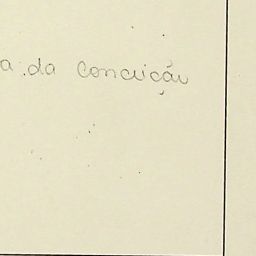 a da Conceição